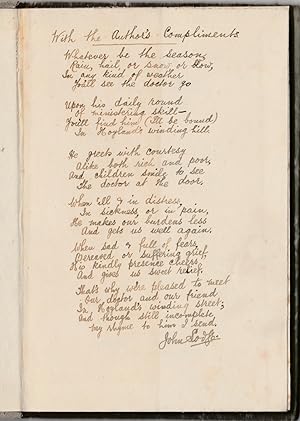 With the Author's Compliments
Whatever be the season,
Rain, hail, or snow, or blow,
In any kind of weather
You'll see the doctor go
Upon his daily round
Of ministering skill—
You'll find him (I'll be bound)
In Hoyland's winding hill.
He greets with courtesy
Alike both rich and poor,
And children smile to see
The doctor at the door.
When ill & in distress,
In sickness, or in pain,
He makes our burdens less
And gets us well again.
When sad & full of fears,
Bereaved, or suffering grief,
His kindly presence cheers,
And gives us sweet relief.
That's why we're pleased to meet
Our doctor and our friend
In Hoyland's winding street;
And though still incomplete
My rhyme to him I send.
John